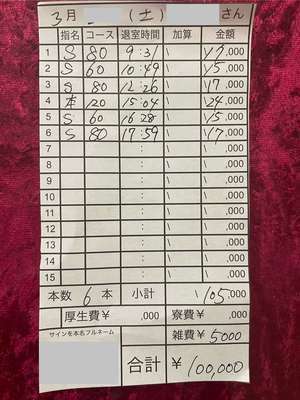 3月 (土) さん
指名 コース 退室時間 加算 金額
1 S 80 9:31 \ \17,000
2 S 60 10:49 \ \15,000
3 S 80 12:26 \ \17,000
4 本 120 15:04 \ \24,000
5 S 60 16:28 \ \15,000
6 S 80 17:59 \ \17,000
7 : \ \ ,000
8 : \ \ ,000
9 : \ \ ,000
10 : \ \ ,000
11 : \ \ ,000
12 : \ \ ,000
13 : \ \ ,000
14 : \ \ ,000
15 : \ \ ,000
本数 6 本 小計 \105,000
厚生費¥ ,000 寮費¥ ,000
サインを本名フルネーム 雑費¥ 5000
合計 ¥100,000